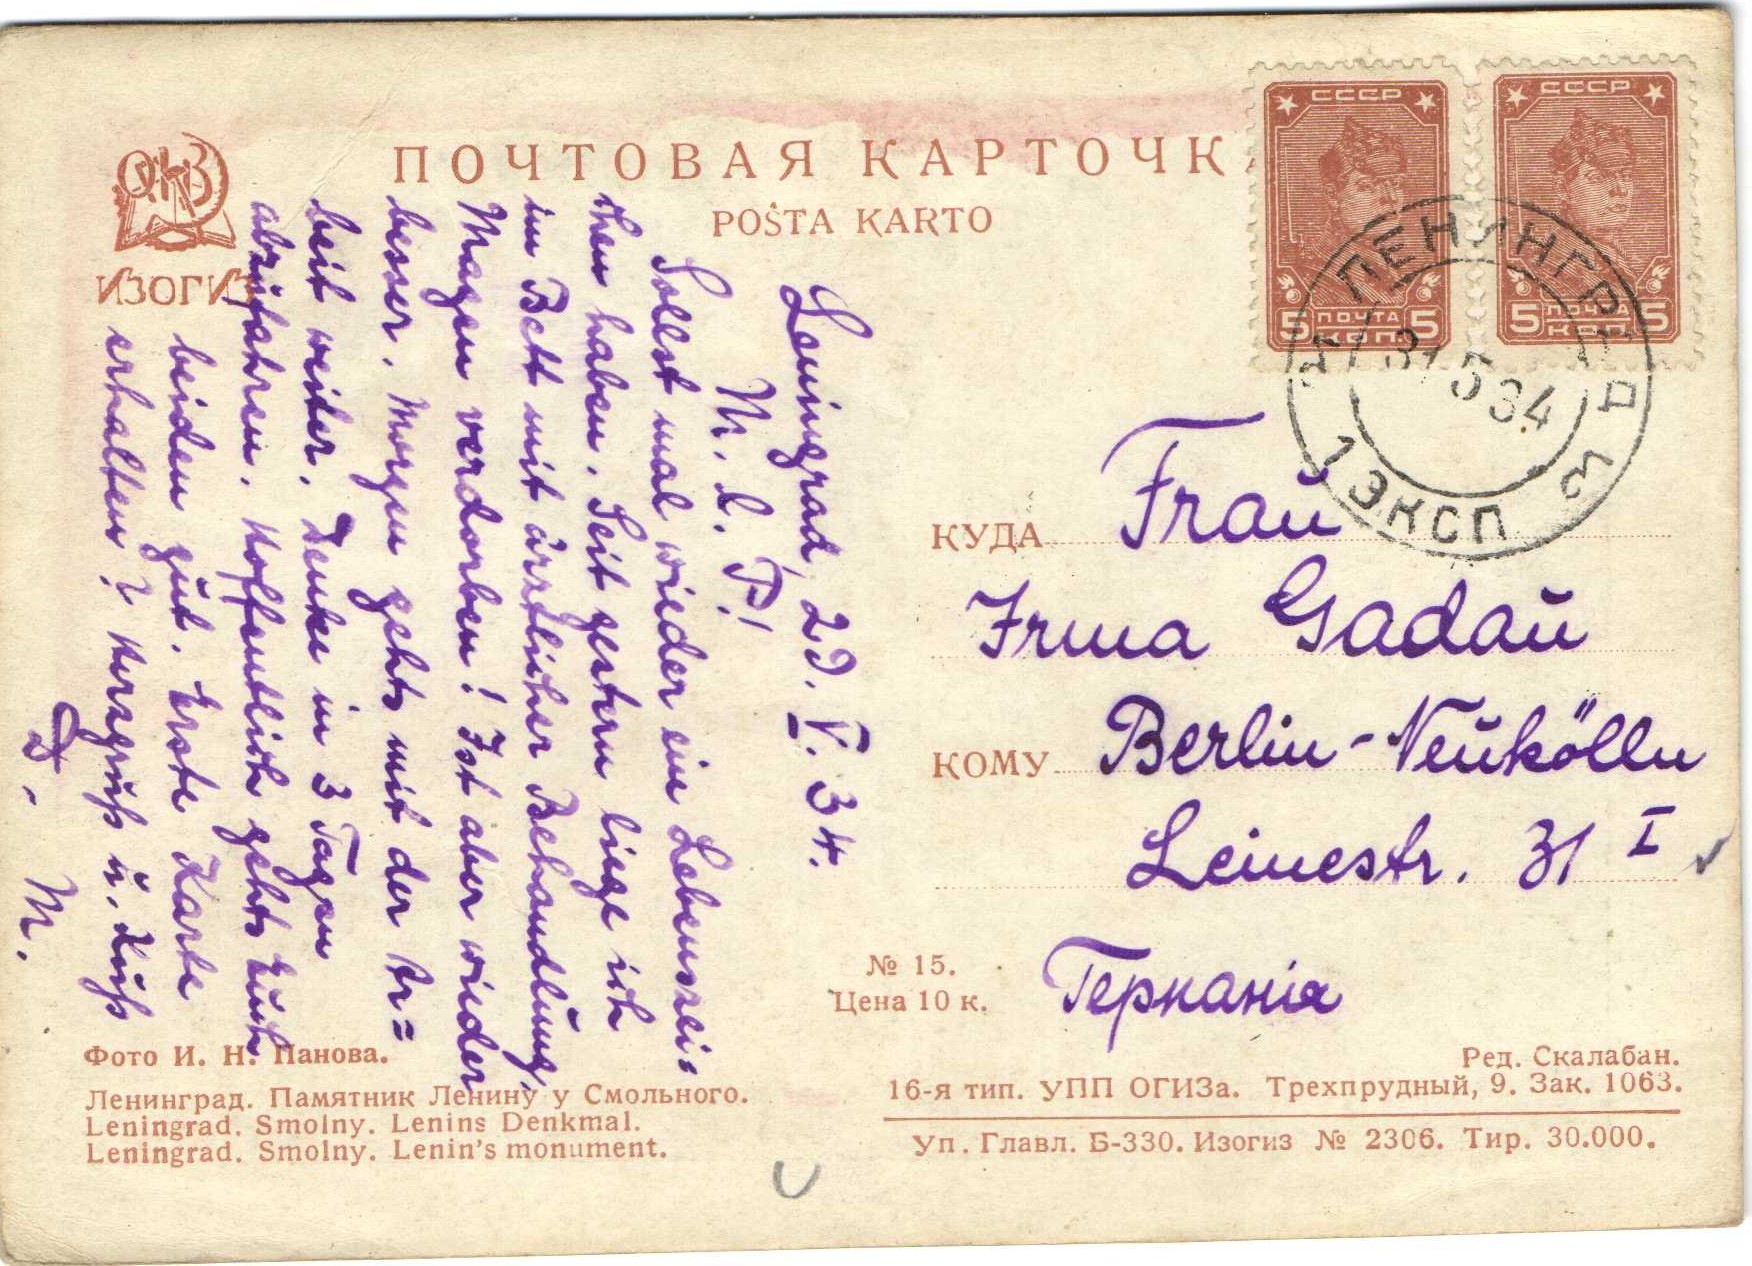 ПОЧТОВАЯ КАРТОЧК
POŜTA KARTO
ИЗОГИЗ
СССР
5 ПОЧТА 5
КОП.
СССР
5 ПОЧТА 5
КОП.
ЛЕНИНГРАД
31 5 34
1 ЭКСП
Leningrad, 29. V. 34.
M. l. P.!
Sollst mal wieder ein Lebenszei-
chen haben. Seit gestern liege ich
im Bett mit ärztlicher Behandlung,
Magen verdorben! Ist aber wieder
besser. Morgen gehts mit der Ar=
beit weiter. Denke in 3 Tagen
abzufahren. Hoffentlich gehts Euch
beiden gut. Erste Karte
erhalten? Herzgruß u. Kuß
D. M.
КУДА Frau
Irma Gadau
КОМУ Berlin-Neukölln
Leinestr. 31 I
Германія
№ 15.
Цена 10 к.
Фото И. Н. Панова.
Ленинград. Памятник Ленину у Смольного.
Leningrad. Smolny. Lenins Denkmal.
Leningrad. Smolny. Lenin's monument.
Ред. Скалабан.
16-я тип. УПП ОГИЗа. Трехпрудный, 9. Зак. 1063.
Уп. Главл. Б-330. Изогиз № 2306. Тир. 30.000.